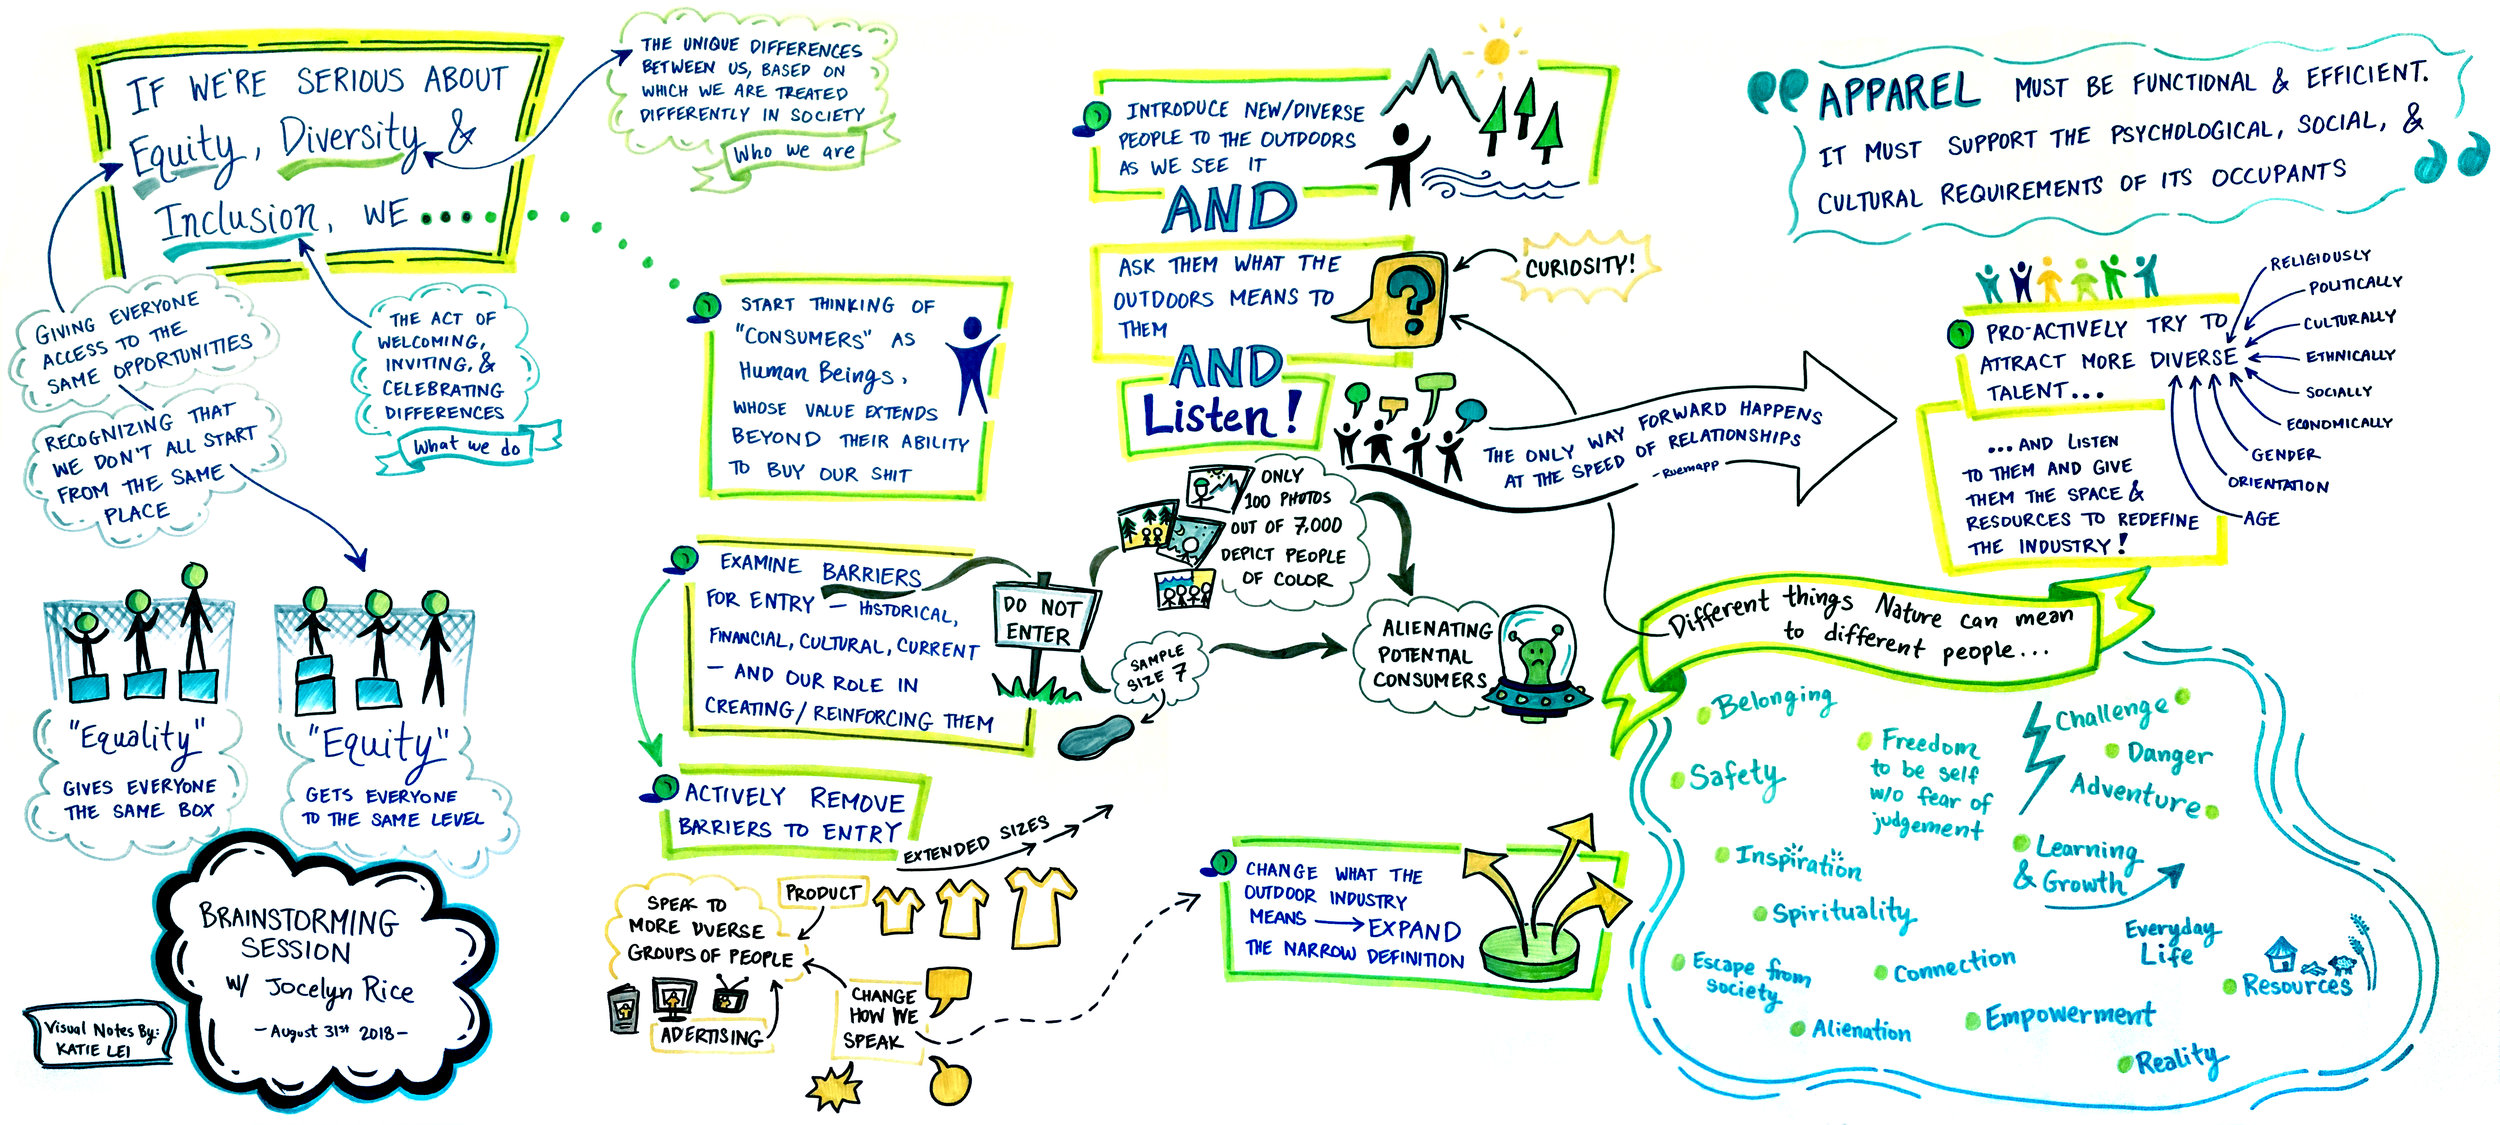 IF WE'RE SERIOUS ABOUT
Equity, Diversity &
Inclusion, WE
THE UNIQUE DIFFERENCES
BETWEEN US, BASED ON
WHICH WE ARE TREATED
DIFFERENTLY IN SOCIETY
Who we are
GIVING EVERYONE
ACCESS TO THE
SAME OPPORTUNITIES
RECOGNIZING THAT
WE DON'T ALL START
FROM THE SAME
PLACE
THE ACT OF
WELCOMING,
INVITING, &
CELEBRATING
DIFFERENCES
What we do
"Equality"
GIVES EVERYONE
THE SAME BOX
"Equity"
GETS EVERYONE
TO THE SAME LEVEL
BRAINSTORMING
SESSION
W/ Jocelyn Rice
- August 31st 2018 -
VISUAL NOTES BY:
KATIE LEI
START THINKING OF
"CONSUMERS" AS
Human Beings,
WHOSE VALUE EXTENDS
BEYOND THEIR ABILITY
TO BUY OUR SHIT
EXAMINE BARRIERS
FOR ENTRY - HISTORICAL,
FINANCIAL, CULTURAL, CURRENT
- AND OUR ROLE IN
CREATING/REINFORCING THEM
DO NOT
ENTER
ONLY
100 PHOTOS
OUT OF 7,000
DEPICT PEOPLE
OF COLOR
SAMPLE
SIZE 7
ALIENATING
POTENTIAL
CONSUMERS
ACTIVELY REMOVE
BARRIERS TO ENTRY
EXTENDED SIZES
PRODUCT
SPEAK TO
MORE DVERSE
GROUPS OF PEOPLE
ADERTISING
CHANGE
HOW WE
SPEAK
INTRODUCE NEW/DIVERSE
PEOPLE TO THE OUTDOORS
AS WE SEE IT
AND
ASK THEM WHAT THE
OUTDOORS MEANS TO
THEM
?
CURIOSITY!
AND
Listen!
THE ONLY WAY FORWARD HAPPENS
AT THE SPEED OF RELATIONSHIPS
- RUEMAPP
CHANGE WHAT THE
OUTDOOR INDUSTRY
MEANS → EXPAND
THE NARROW DEFINITION
"APPAREL MUST BE FUNCTIONAL & EFFICIENT.
IT MUST SUPPORT THE PSYCHOLOGICAL, SOCIAL, &
CULTURAL REQUIREMENTS OF ITS OCCUPANTS"
PRO-ACTIVELY TRY TO
ATTRACT MORE DIVERSE
TALENT...
...AND LISTEN
TO THEM AND GIVE
THEM THE SPACE &
RESOURCES TO REDEFINE
THE INDUSTRY!
RELIGIOUSLY
POLITICALLY
CULTURALLY
ETHNICALLY
SOCIALLY
ECONOMICALLY
GENDER
ORIENTATION
AGE
Different things Nature can mean
to different people...
Belonging
Safety
Freedom
to be self
w/o fear of
judgement
Challenge
Danger
Adventure
Inspiration
Learning
& Growth
Spirituality
Everyday
Life
Escape from
society
Connection
Resources
Alienation
Empowerment
Reality